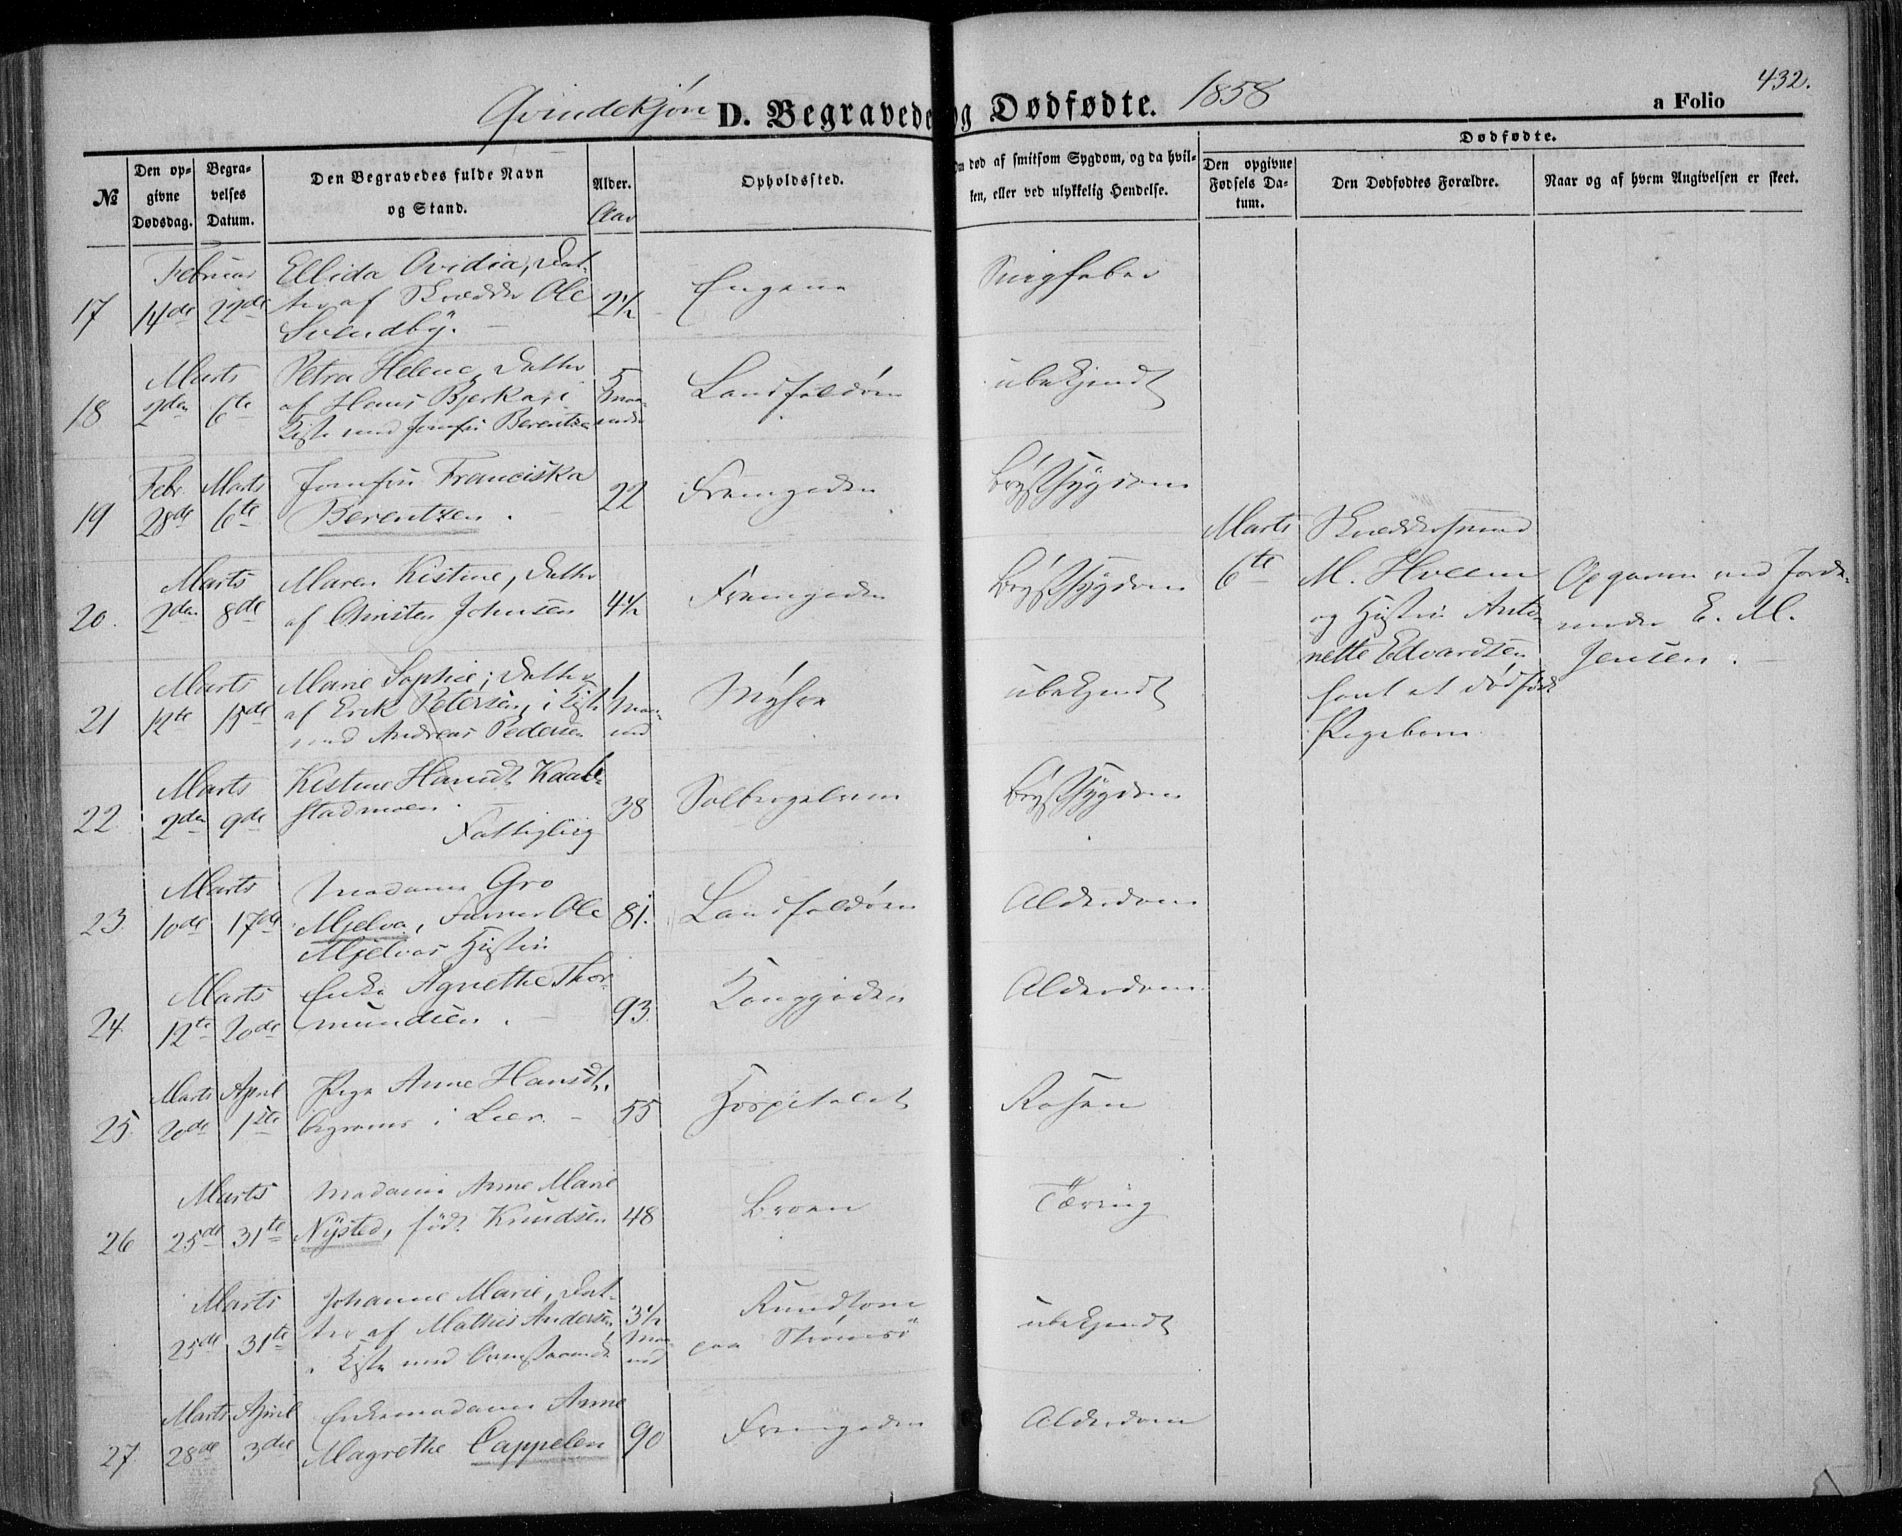 Qvindekjøn D. Begravede og Dødfødte. 1858
a Folio 432.
No
Den opgivne Dødsdag.
Begravelses Datum.
Den Begravedes fulde Navn og Stand.
Alder.
Aar
Opholdssted.
Om død af smitsom Sygdom, og da hvilken, eller ved ulykkelig Hendelse.
Dødfødte.
Den opgivne Fødsels Datum.
Den Dødfødtes Forældre.
Naar og af hvem Angivelsen er skeet.
17 Februar 14de 22de
Ellida Ovidia, Dat-
ter af Skrædder Ole
Svendby.
2½ Engene
18 Marts 2den 6te
Petra Helene, Datter
af Hans Bjerkas i
Kiste med Jomfru Berentzen
5 Maaneder Landfaldøen ubekjendt
19 Febr. 28de Marts 6te
Jomfru Franciska
Berentzen.
22 Fremgaden Brystsygdom
20. Marts 2den 8de
Maren Kistine, Datter
af Christen Johnsen
4½ Fremgaden Brystsygdom
Marts 6te
Skræddersvend
M. Hveem
og Hustru Anto-
nette Edvardsen
havt et dødfødt
Pigebarn
Opgaven ved Jorde-
moder E. M.
Jensen.
21 Marts 12te 15de
Marie Sophie, Datter
af Erik Petersen, i Kiste
med Andreas Pedersen
1 Maaned Myhre ubekjendt
22 Marts 2den 9de
Kistine Hansdt.
stadmoen.
Fattiglig
38 Solbergelven Brystsygdom
23 Marts 10de 17de
Madame Gro
Mjelva, Ole
Mjelvas Hustru
81. Landfaldøen Alderdom
24. Marts 12te 20de
Enke Agnethe Thor-
mundsen.
93. Konggaden Alderdom
25. Marts 20de April 1ste
Pige Anne Hansdt.
begraves i Lier.
55 Hospitalet Rosen
26 Marts 25de 31te
Madame Anne Marie
Nysted, født Knudsen
48 Broen Tæring
Marts 25de 31te
Johanne Marie, Dat-
ter af Mathis Andersen
i Kiste med Ovenstaaende
3½ Maaned
Rundtom
paa Strømsö
ubekjendt
27 Marts 28de April 3die
Enkemadame Anne
Magrethe Cappelen
90 Fremgaden Alderdom